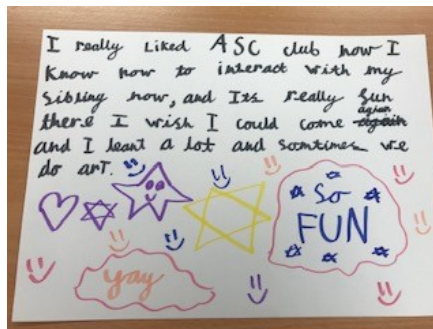 I really liked ASC club now I
know how to interact with my
sibling now, and Its really fun
there I wish I could come again
and I leant a lot and somtimes we
do art.
So
FUN
yay